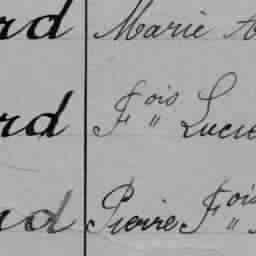 rd Marie A
rd F^ois " Lucie
rd Pierre F^ois "